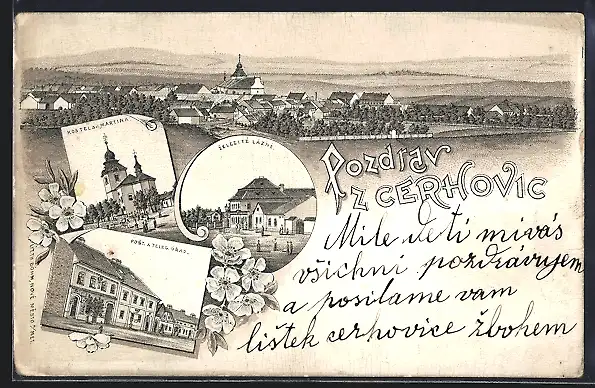 KOSTEL SV. MARTINA.
ŽELEZITÉ LÁZNĚ.
Pozdrav
z CERHOVIC
POŠT. A TELEG. ÚŘAD.
Mile děti mivás
všichni pozdrávujem
a posilame vam
listek cerhovice žbohem